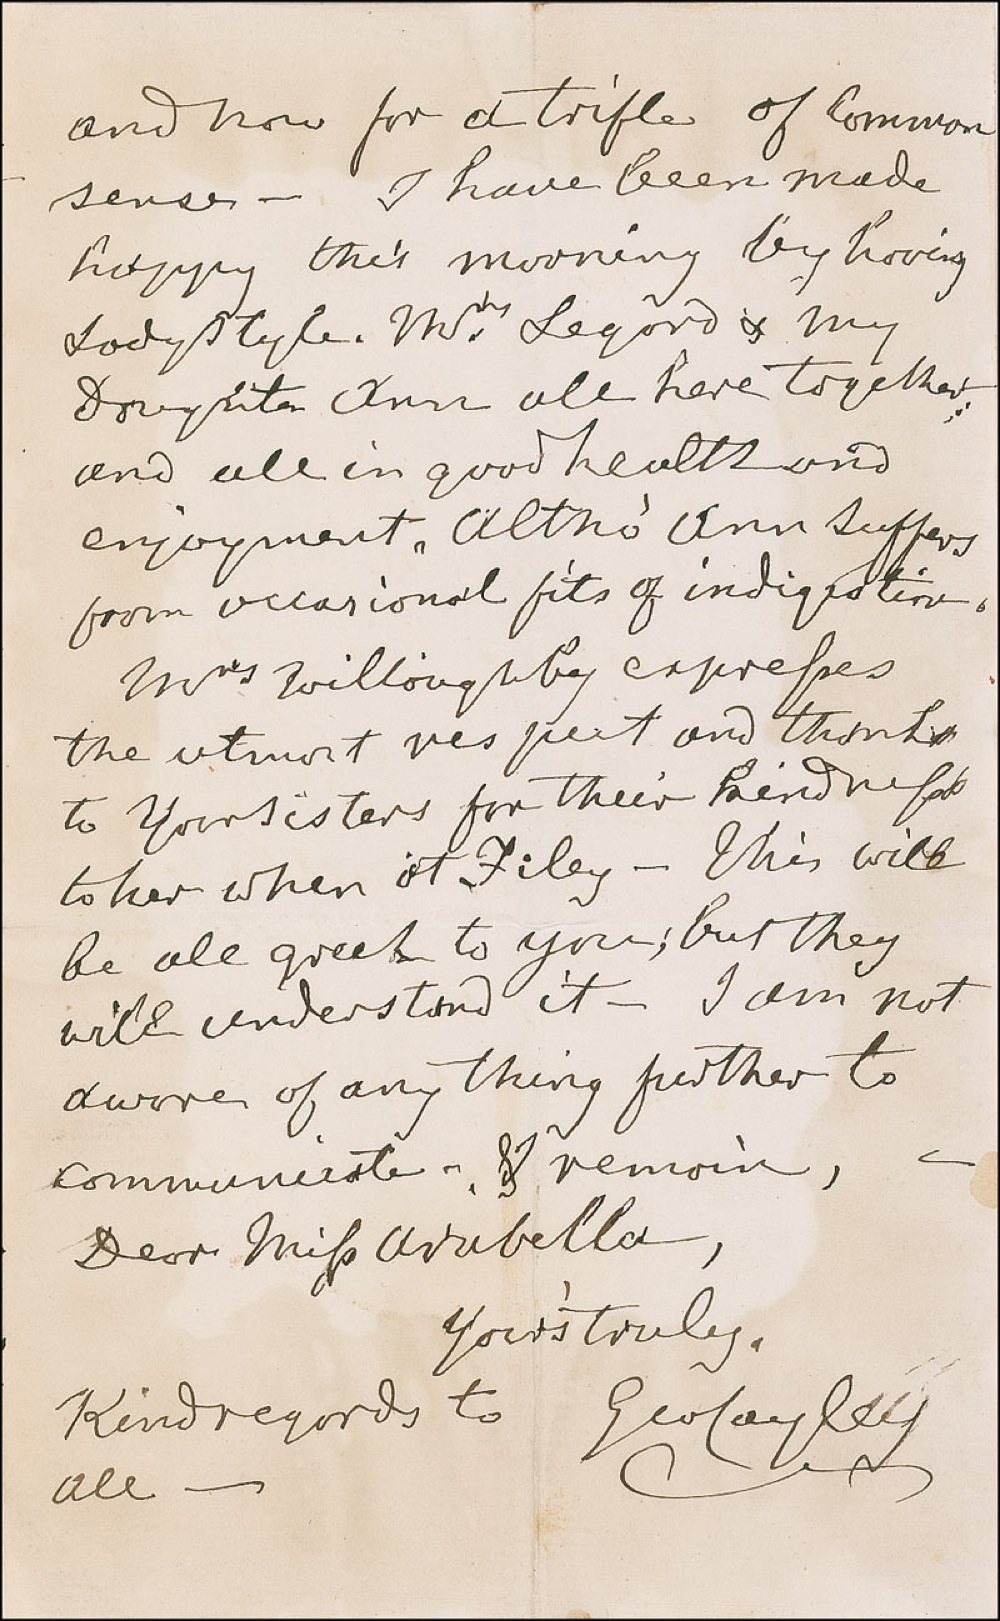 and now for a trifle of Common
sense – I have been made
happy this morning by having
Lady Style. Mrs Legard & my
Daughter Ann all here together
and all in good health and
enjoyment, Altho' Ann suffers
from occasional fits of indigestion.
Mrs Willoughby expresses
the utmost respect and thanks
to Your Sisters for their kindness
to her when at Filey – This will
be all greek to you; but they
will understand it – I am not
aware of any thing further to
communicate – & remain,
Dear Miss Arabella,
Your's truly.
Kind regards to
all —
Geo Cayley